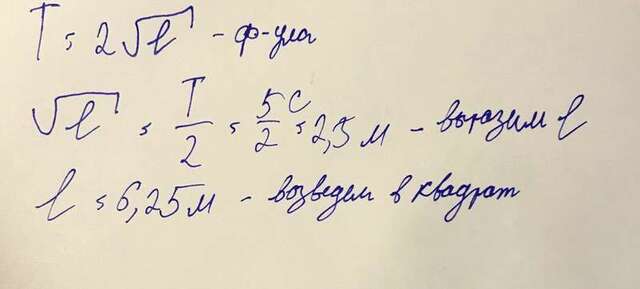 T = 2√l - ф-ула
√l = T/2 = 5с/2 = 2,5 м - выразим l
l = 6,25 м - возведем в квадрат